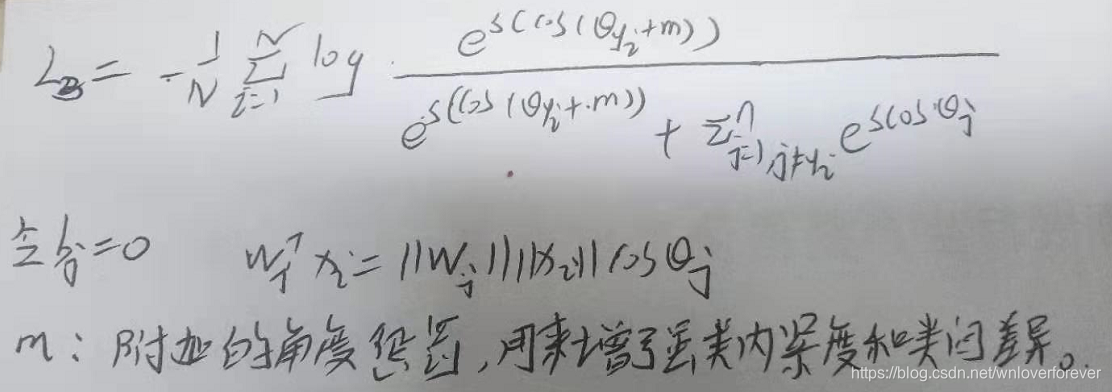 L₃ = -1/N Σ_{i=1}^{N} log e^{s(cos(θ_{y_i}+m))} / (e^{s(cos(θ_{y_i}+m))} + Σ_{j=1, j≠y_i}^{n} e^{s cos θ_j})
令b_j=0 W_j^T x_i = ||W_j|| ||x_i|| cos θ_j
m: 附加的角度惩罚,用来增强类内紧度和类间差异。
https://blog.csdn.net/wnloverforever